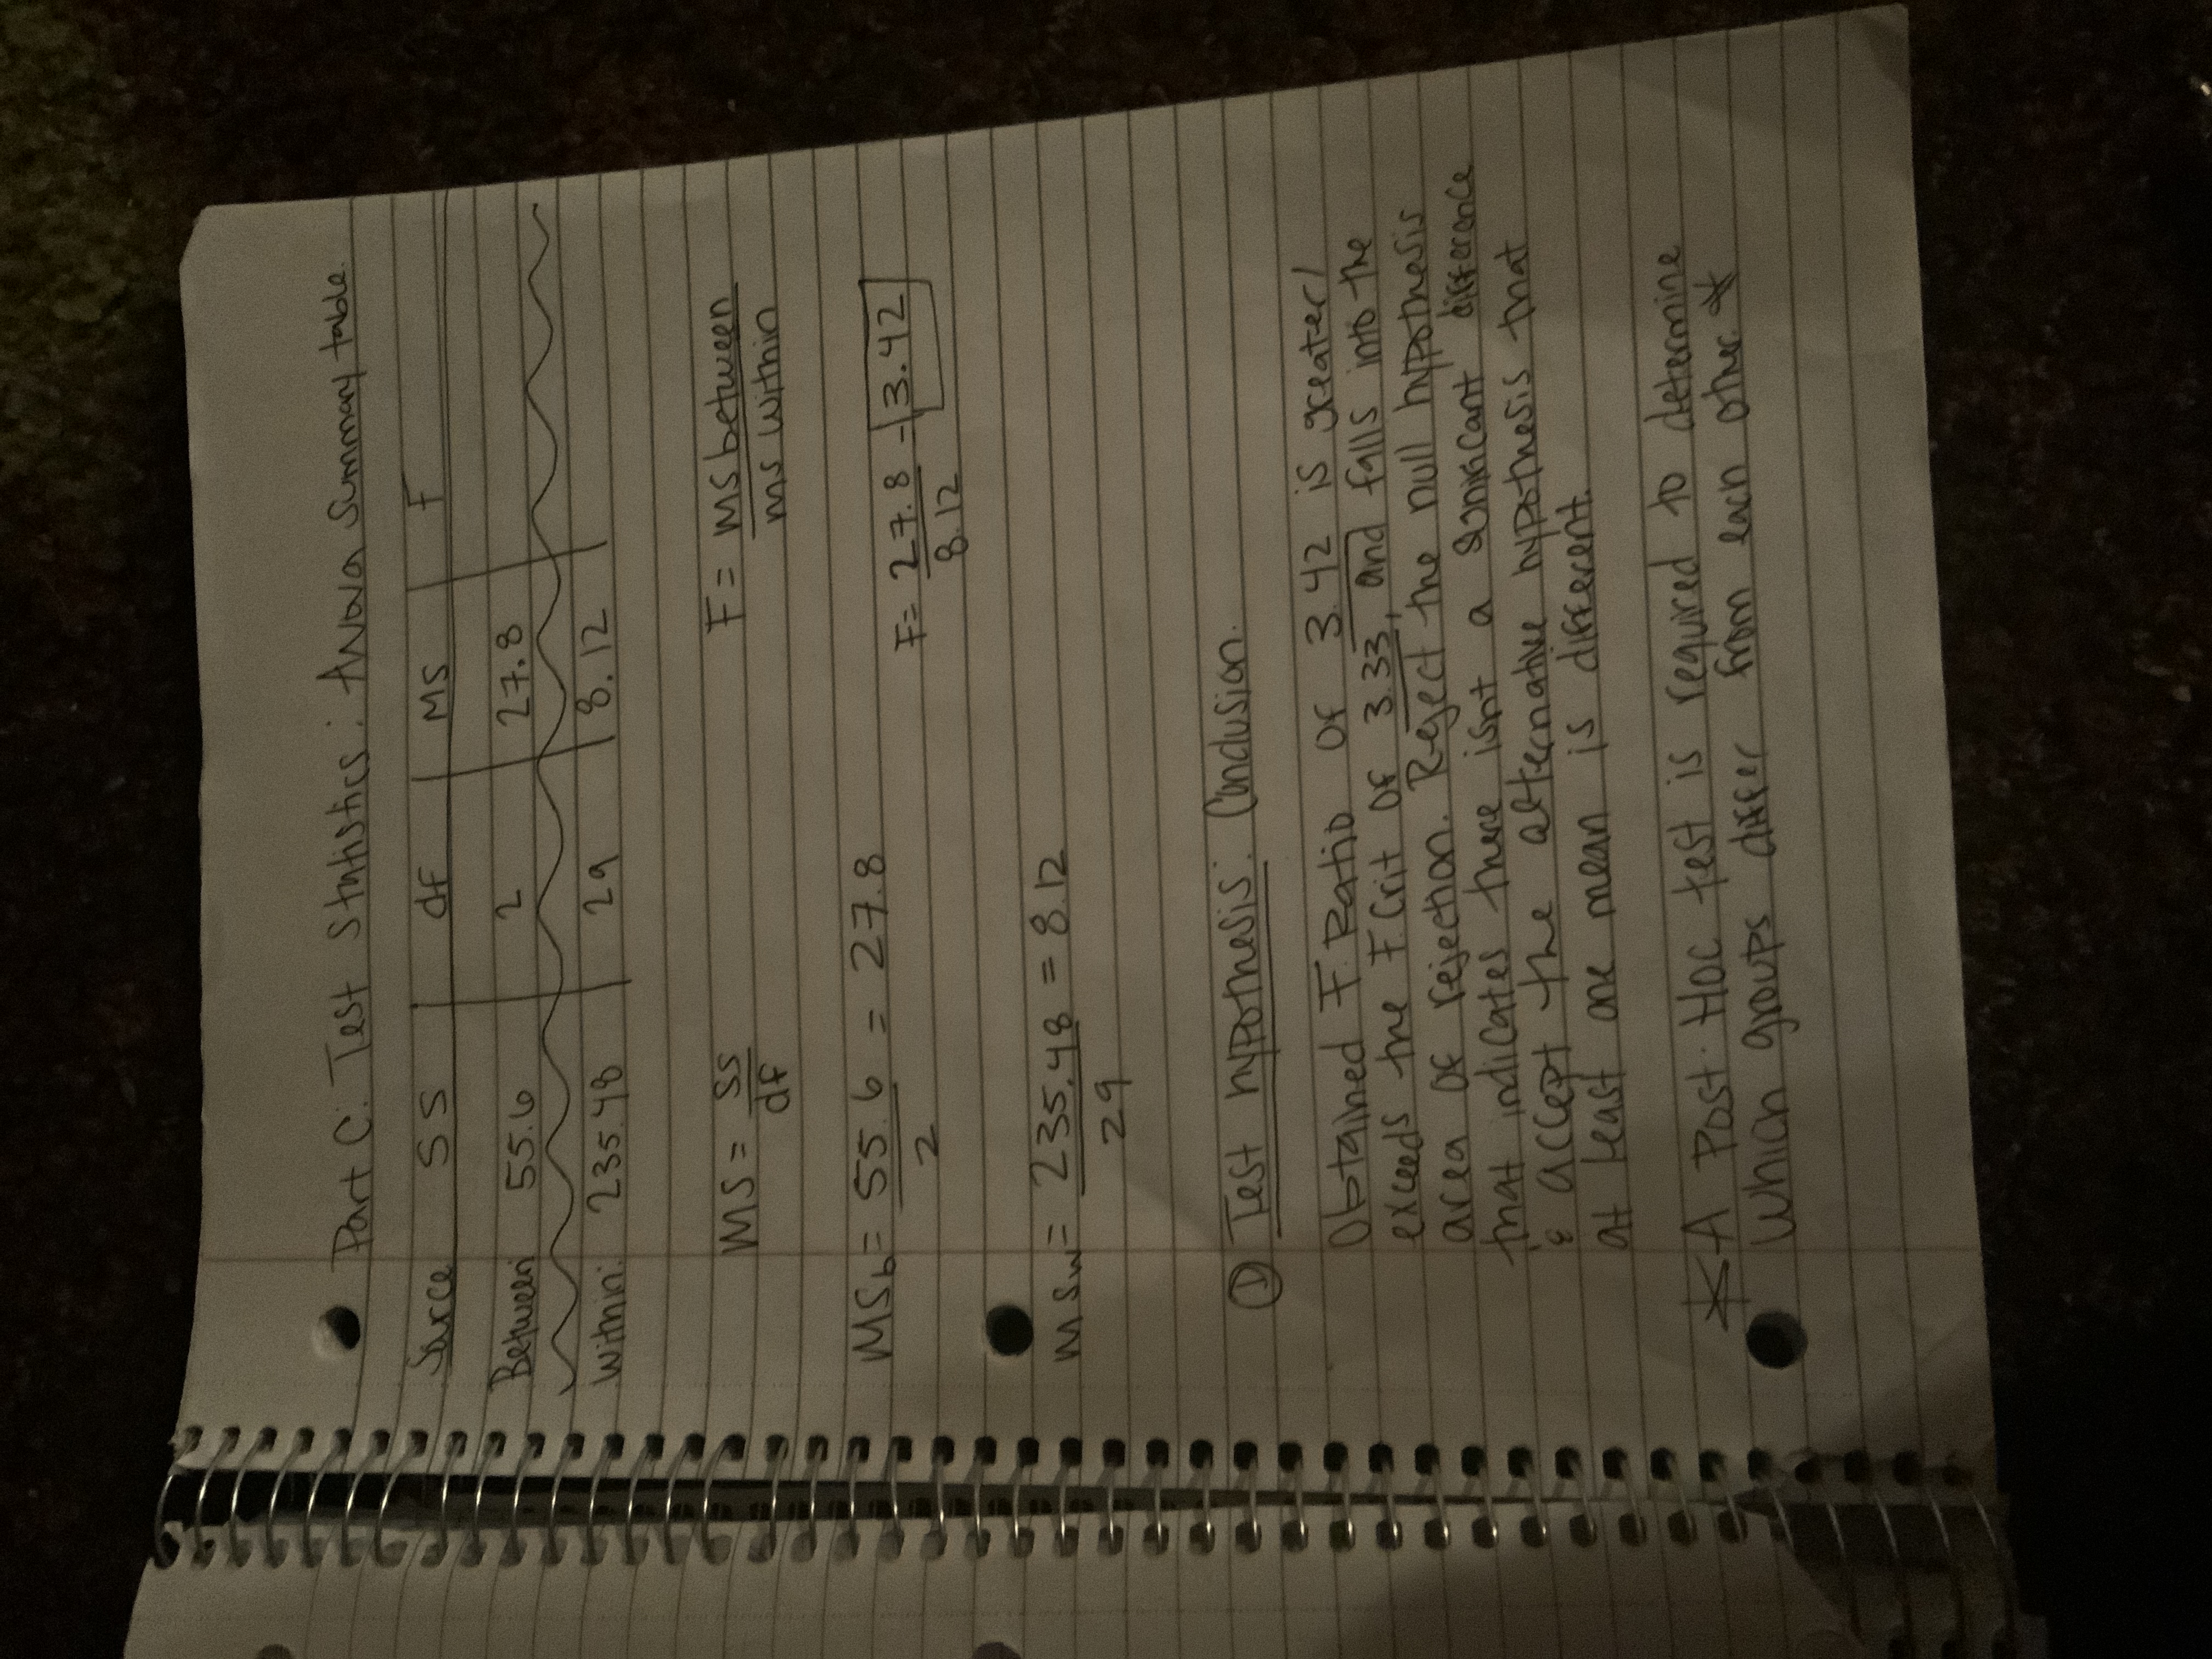 Part C: Test Statistics: Anova Summary table.
Source SS df MS F
Between 55.6 2 27.8
Within 235.48 29 8.12
MS = SS/df F = MS between/ms within
MSb = 55.6/2 = 27.8 F = 27.8/8.12 = 3.42
MSw = 235.48/29 = 8.12
① Test hypothesis: Conclusion.
Obtained F. Ratio of 3.42 is greater/
exceeds the F.Crit of 3.33, and falls into the
area of rejection. Reject the null hypothesis
that indicates there isnt a significant difference
& accept the alternative hypothesis that
at least one mean is different.
* A Post. Hoc test is required to determine
Which groups differ from each other. *